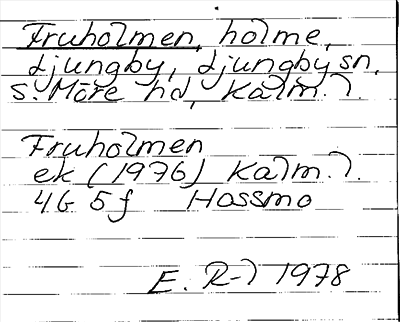 Fruholmen, holme,
Ljungby, Ljungby sn,
S. Möre hd, Kalm. l.
Fruholmen
ek (1976) Kalm. l.
4G 5f Hossmo
E. R-l 1978